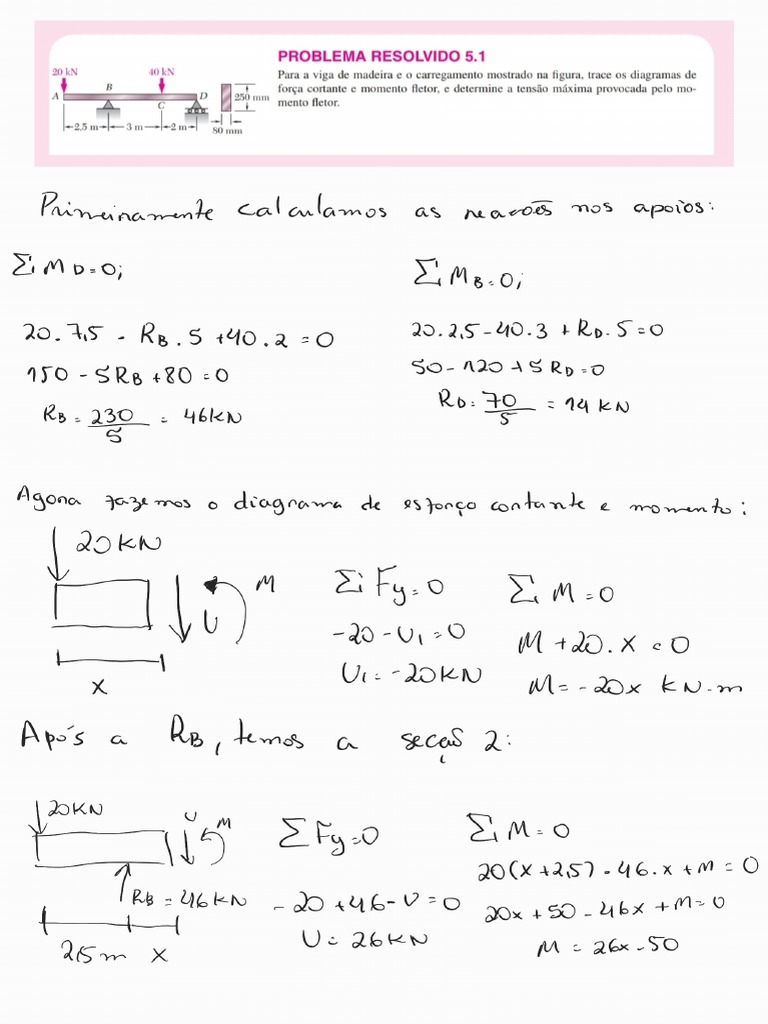 PROBLEMA RESOLVIDO 5.1
Para a viga de madeira e o carregamento mostrado na figura, trace os diagramas de
força cortante e momento fletor, e determine a tensão máxima provocada pelo mo-
mento fletor.
20 kN
40 kN
A
B
C
D
250 mm
2,5 m
3 m
2 m
80 mm
Primeiramente calculamos as reações nos apoios:
ΣMD=0;
20.7,5 - RB.5 +40.2 =0
150 - 5RB +80 =0
RB = 230/5 = 46kN
ΣMB=0;
20.2,5-40.3 +RD.5=0
50-120+5RD=0
RD: 70/5 = 14 kN
Agora fazemos o diagrama de esforço cortante e momento:
20KN
M
U
x
ΣFy=0
-20-U1=0
U1=-20KN
ΣM=0
M+20.x=0
M=-20x KN.m
Após a RB, temos a seção 2:
20KN
U
M
RB = 46KN
2,5m x
ΣFy=0
-20+46-U=0
U=26KN
ΣM=0
20(x+2,5)-46.x+M=0
20x+50-46x+M=0
M=26x-50